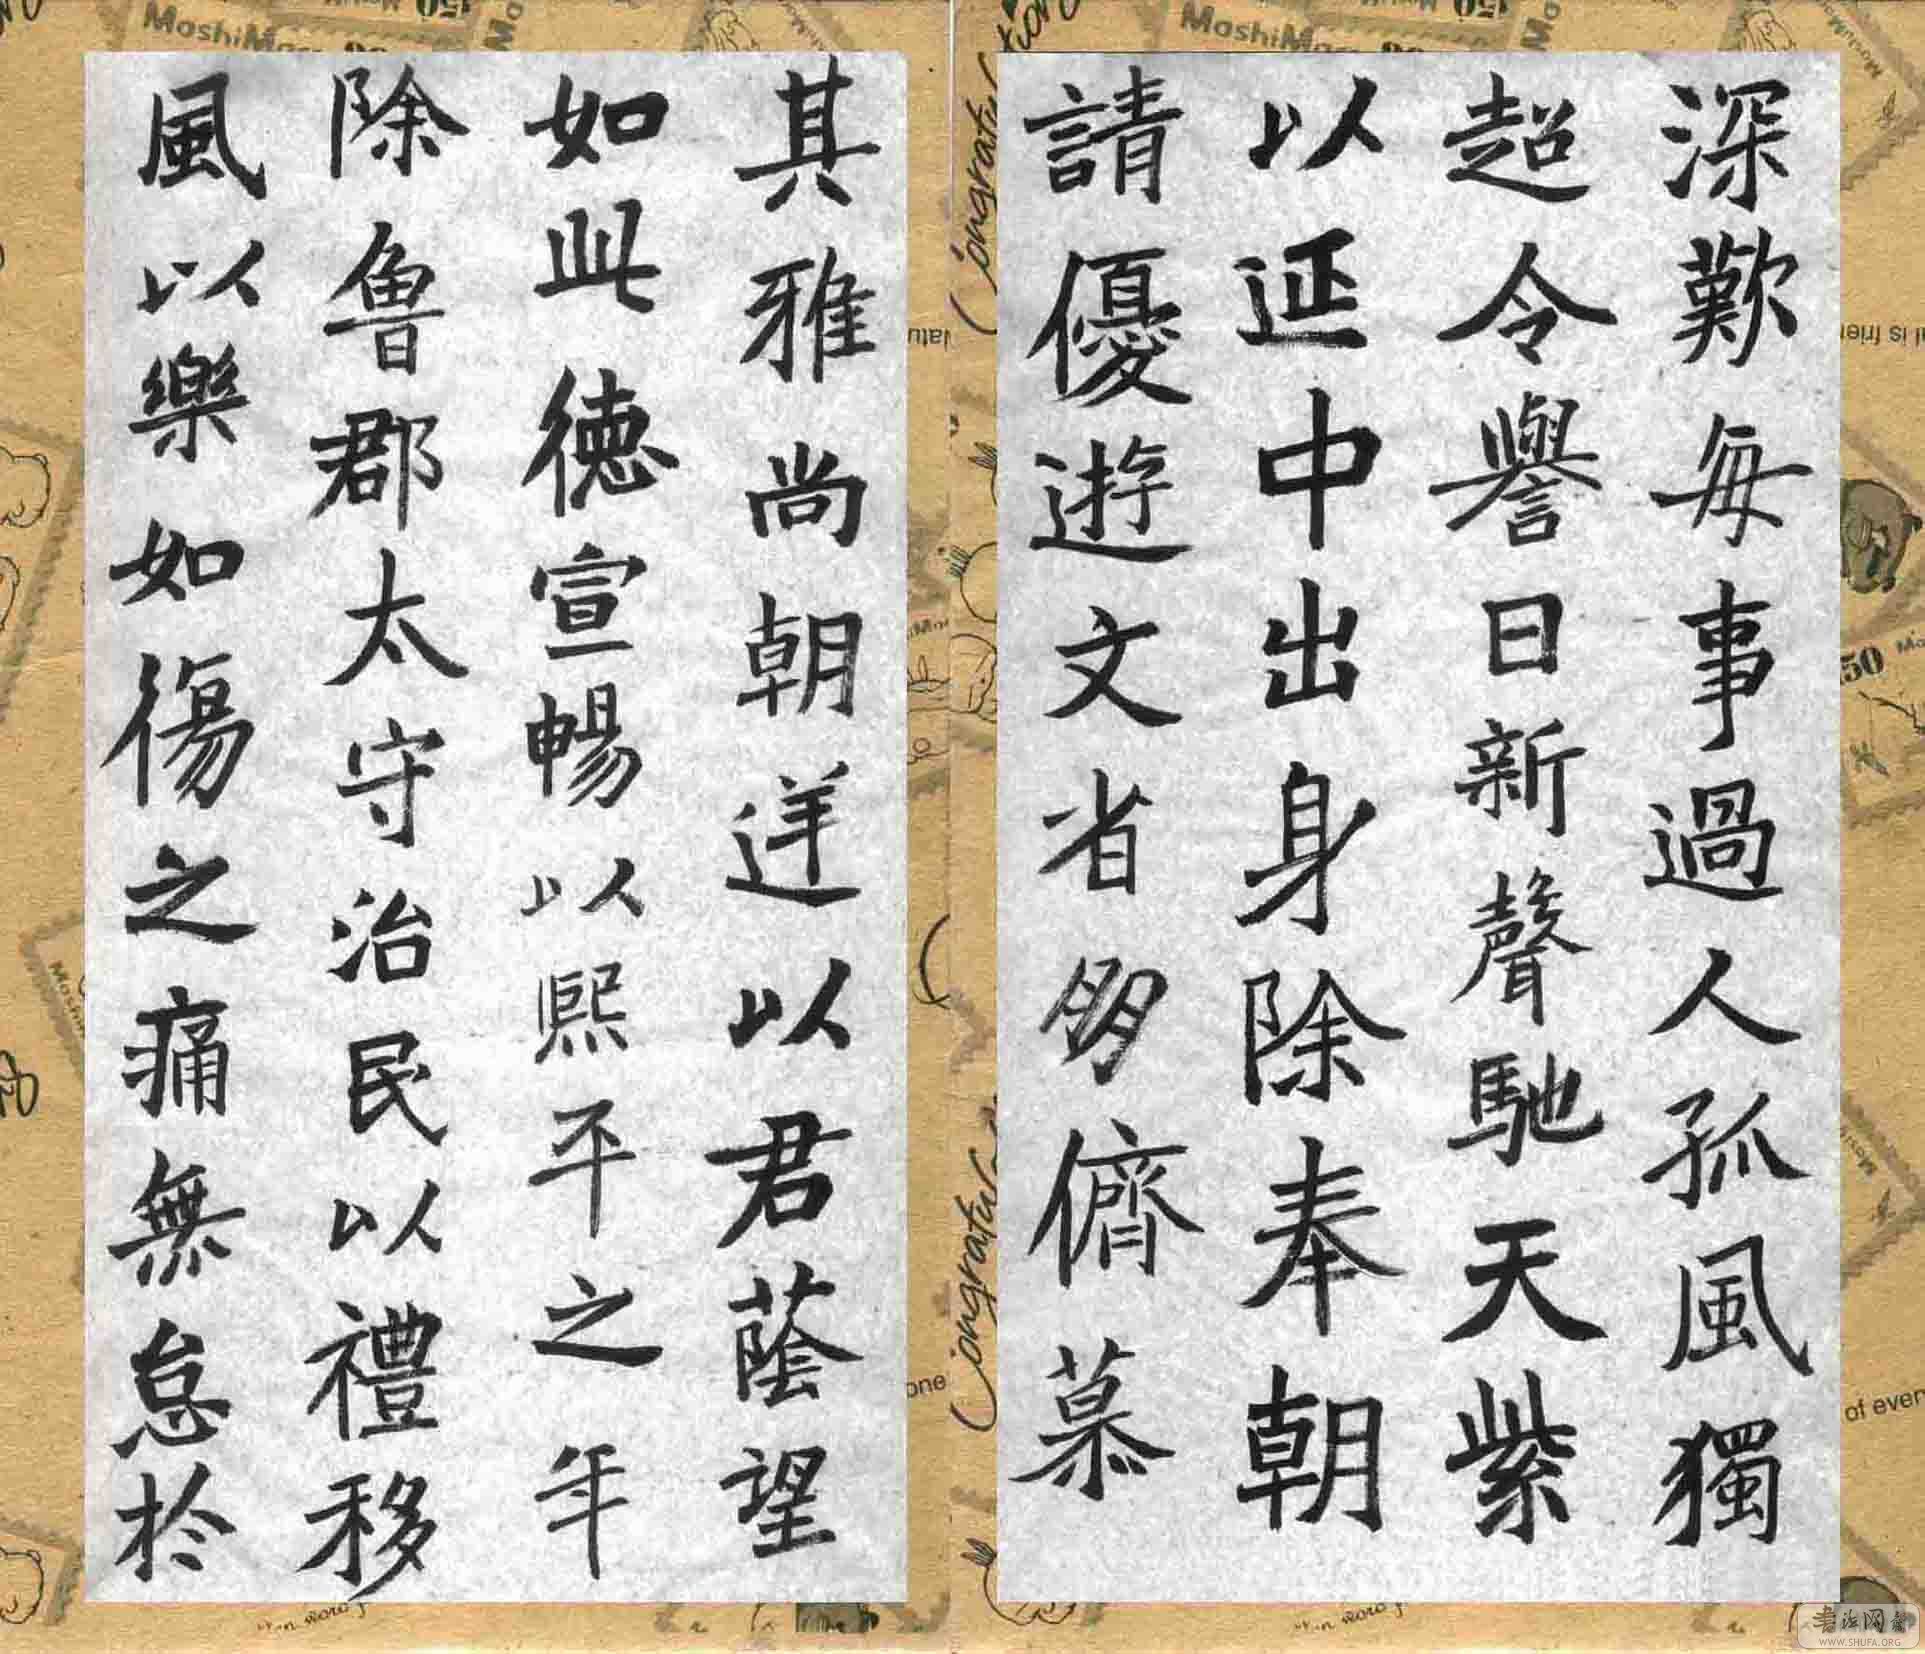 深歎每事過人孤風獨
超令譽日新聲馳天紫
以延中出身除奉朝
請優遊文省朋儕慕
其雅尚朝逆以君蔭望
如此德宣暢以熙平之年
除魯郡太守治民以禮移
風以樂如傷之痛無怠於
MashiMaro
MashiMaro
Congratu
Congratu
of even
one
书法网
WWW.SHUFA.ORG